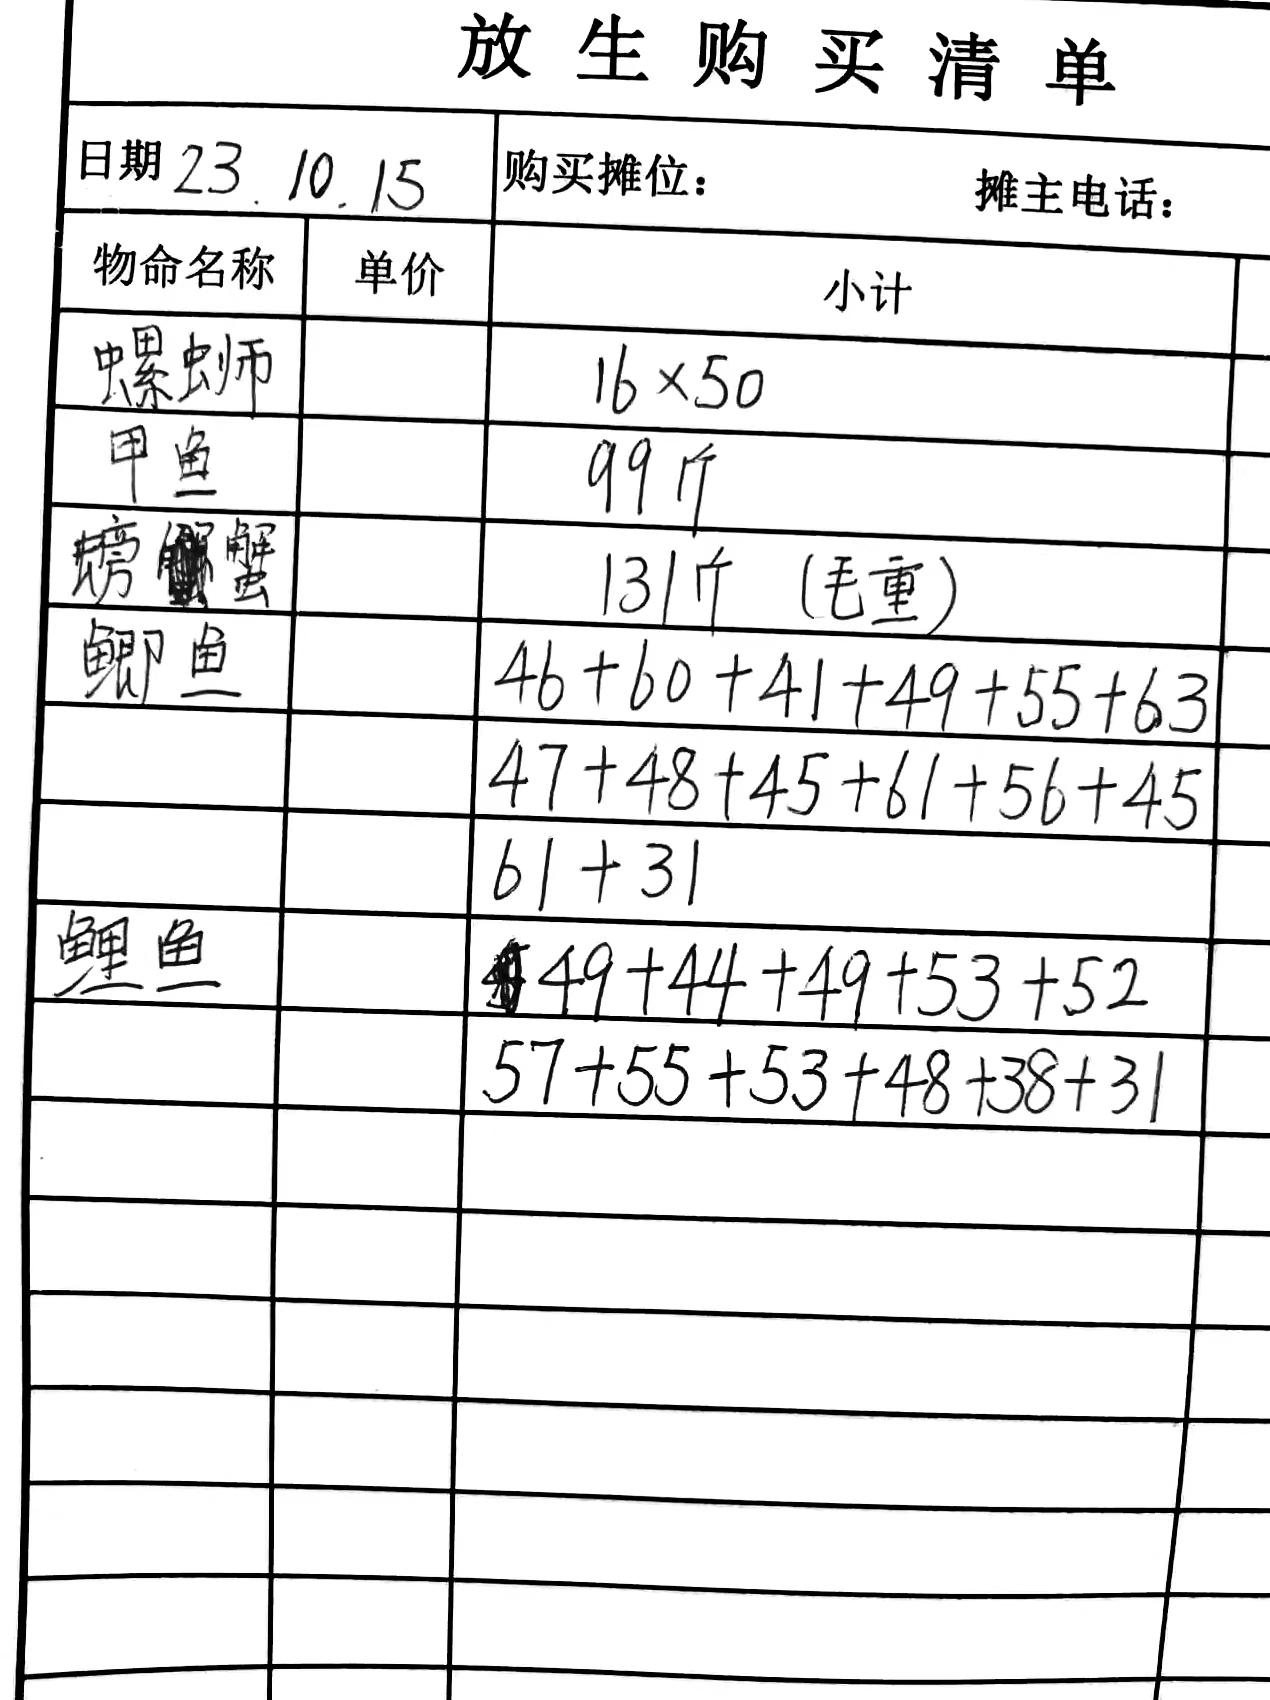 放生购买清单
日期 23.10.15 购买摊位： 摊主电话：
物命名称 单价 小计
螺蛳 16×50
甲鱼 99斤
螃蟹 131斤 (毛重)
鲫鱼 46+60+41+49+55+63
47+48+45+61+56+45
61+31
鲤鱼 49+44+49+53+52
57+55+53+48+38+31